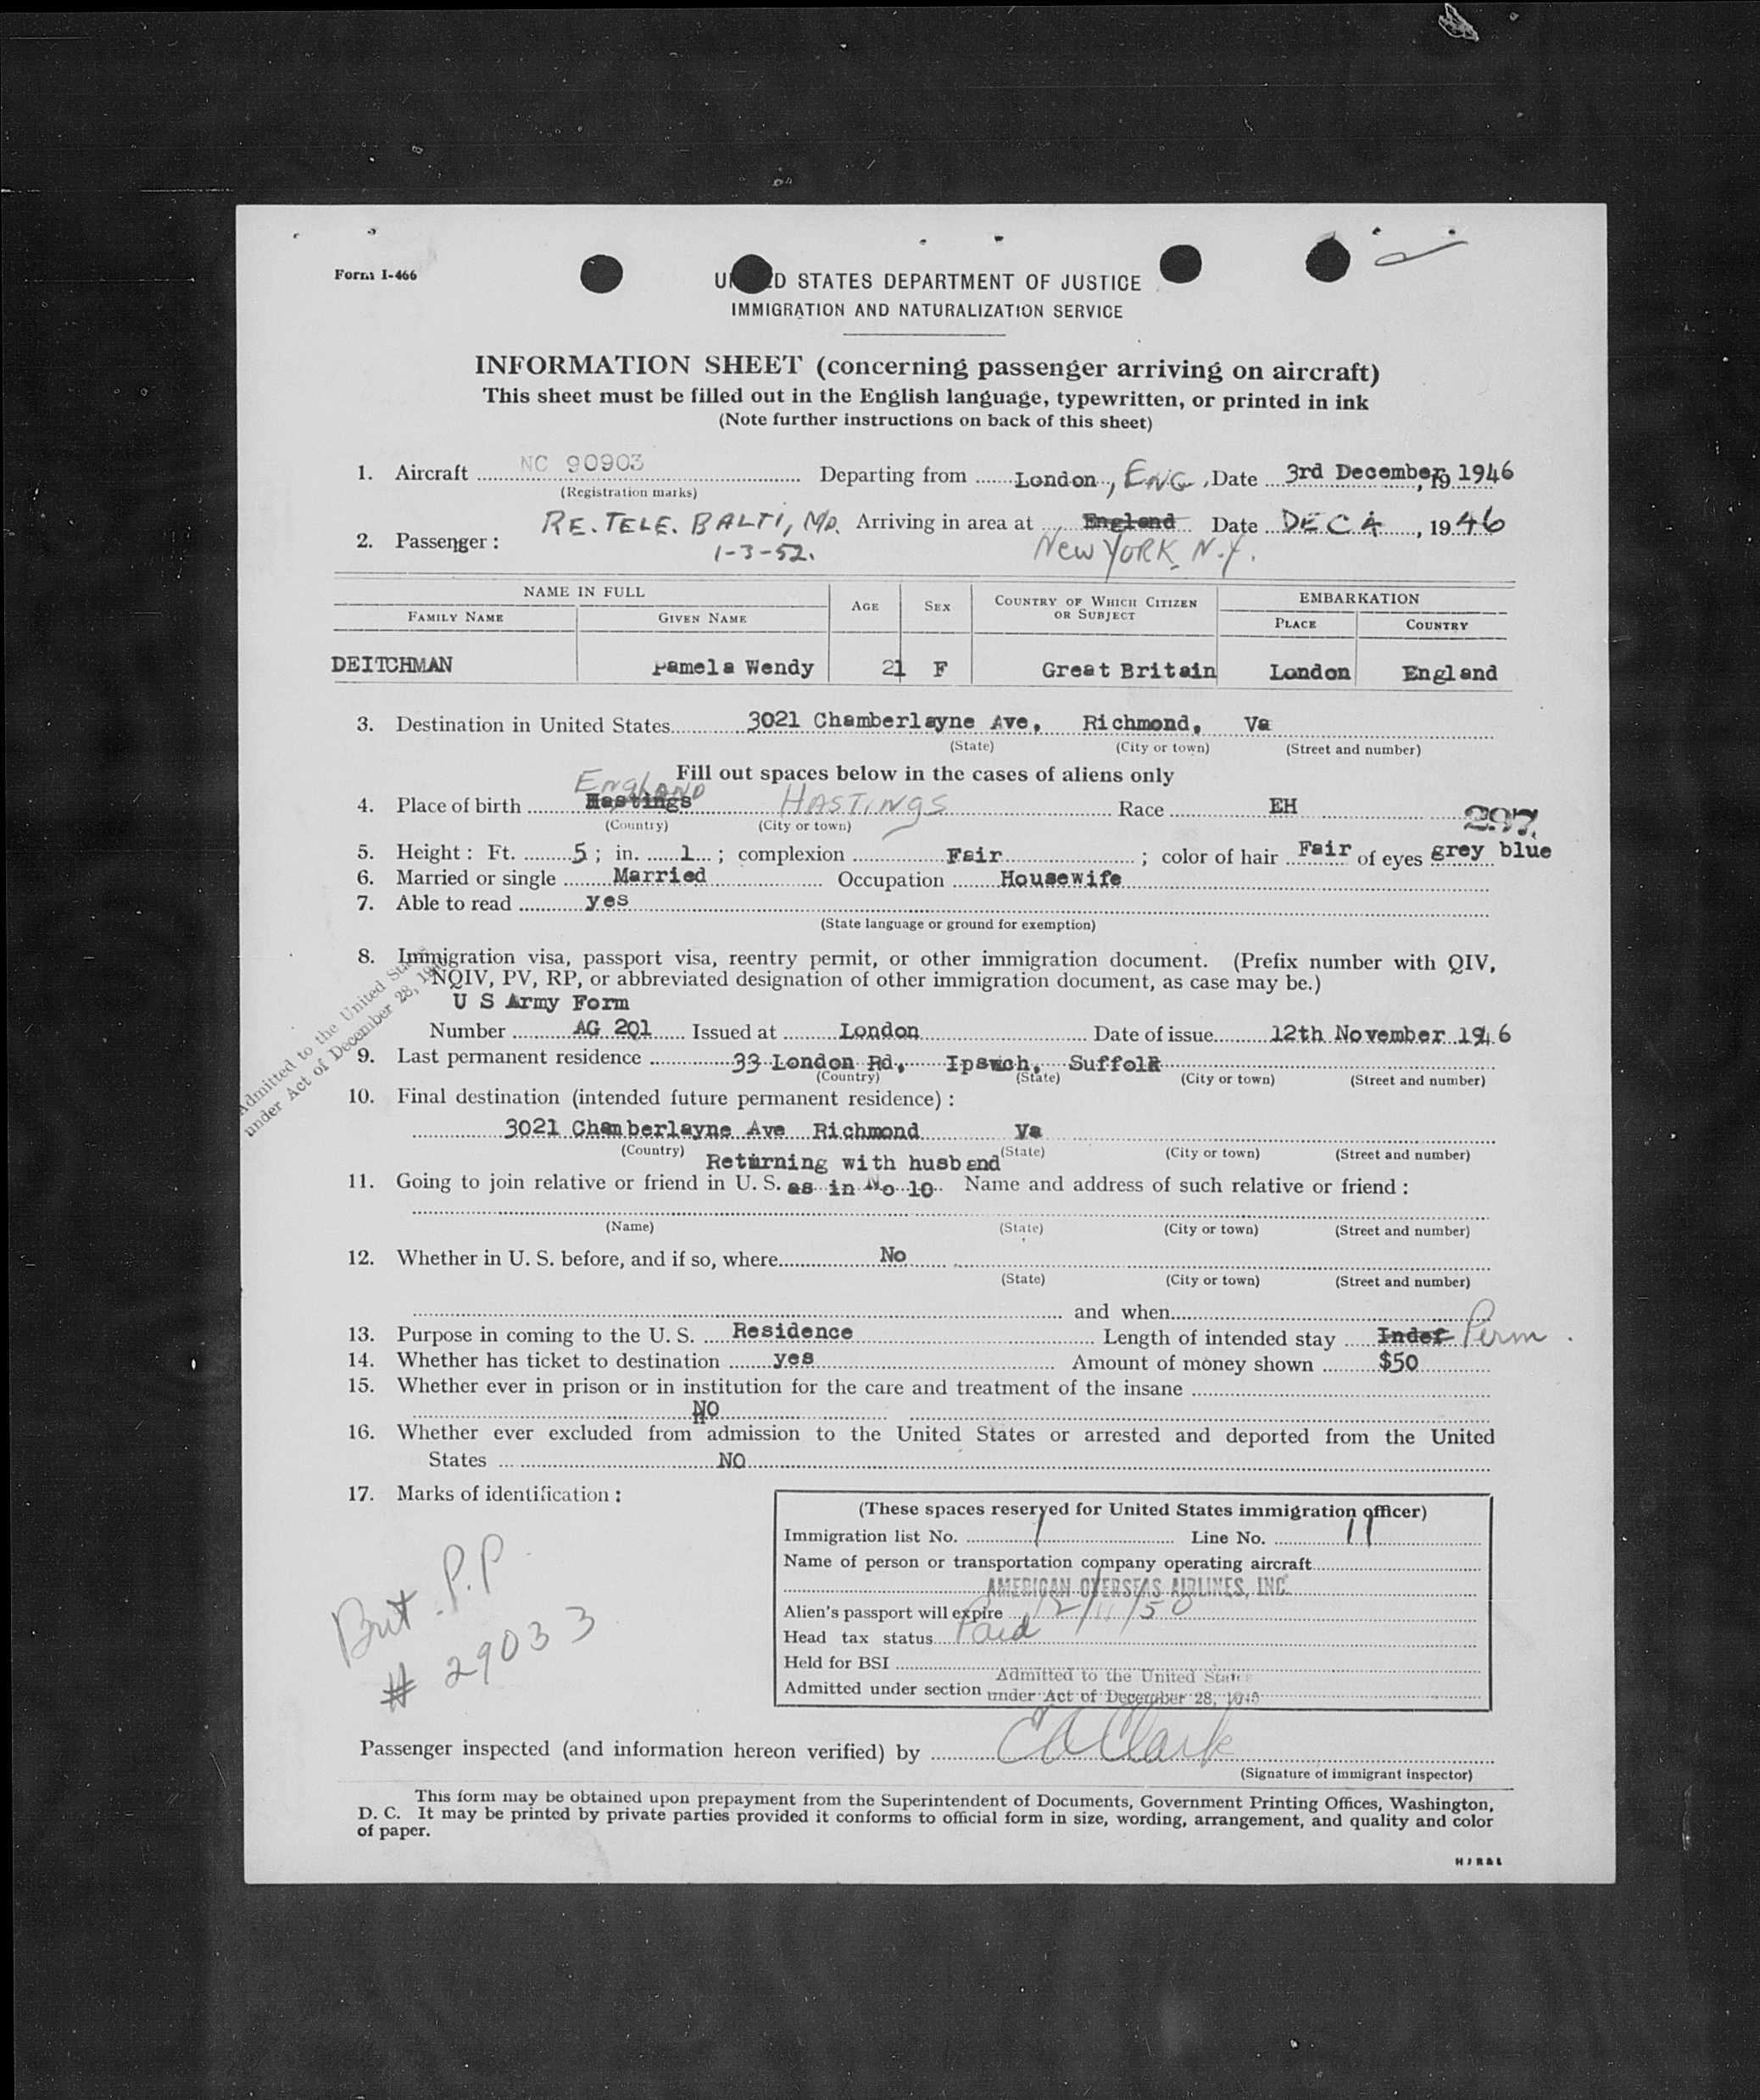 Form I-466
UNITED STATES DEPARTMENT OF JUSTICE
IMMIGRATION AND NATURALIZATION SERVICE
INFORMATION SHEET (concerning passenger arriving on aircraft)
This sheet must be filled out in the English language, typewritten, or printed in ink
(Note further instructions on back of this sheet)
1. Aircraft NC 90903 Departing from London, ENG, Date 3rd December, 19 1946
(Registration marks)
RE. TELE. BALTI, MD. Arriving in area at England Date DEC 4, 1946
2. Passenger: 1-3-52. New YORK, N.Y.
NAME IN FULL AGE SEX COUNTRY OF WHICH CITIZEN OR SUBJECT EMBARKATION
FAMILY NAME GIVEN NAME PLACE COUNTRY
DEITCHMAN Pamela Wendy 21 F Great Britain London England
3. Destination in United States 3021 Chamberlayne Ave, Richmond, Va
(State) (City or town) (Street and number)
Fill out spaces below in the cases of aliens only
ENGLAND
4. Place of birth Hastings HASTINGS Race EH
(Country) (City or town) 297
5. Height: Ft. 5; in. 1; complexion Fair; color of hair Fair of eyes grey blue
6. Married or single Married Occupation Housewife
7. Able to read yes
(State language or ground for exemption)
8. Immigration visa, passport visa, reentry permit, or other immigration document. (Prefix number with QIV,
NQIV, PV, RP, or abbreviated designation of other immigration document, as case may be.)
U S Army Form
Number AG 201 Issued at London Date of issue 12th November 1946
Admitted to the United States
under Act of December 28, 1945
9. Last permanent residence 33 London Rd, Ipswch, Suffolk
(Country) (State) (City or town) (Street and number)
10. Final destination (intended future permanent residence):
3021 Chamberlayne Ave Richmond Va
(Country) (State) (City or town) (Street and number)
Returning with husband
11. Going to join relative or friend in U. S. as in No 10 Name and address of such relative or friend:
(Name) (State) (City or town) (Street and number)
12. Whether in U. S. before, and if so, where No
(State) (City or town) (Street and number)
and when
13. Purpose in coming to the U. S. Residence Length of intended stay Indef Perm.
14. Whether has ticket to destination yes Amount of money shown $50
15. Whether ever in prison or in institution for the care and treatment of the insane
NO
16. Whether ever excluded from admission to the United States or arrested and deported from the United
States NO
17. Marks of identification:
Brit. P.P
# 29033
(These spaces reserved for United States immigration officer)
Immigration list No. 1 Line No. 11
Name of person or transportation company operating aircraft
AMERICAN OVERSEAS AIRLINES, INC.
Alien's passport will expire 12/11/50
Head tax status Paid
Held for BSI
Admitted to the United States
Admitted under section under Act of December 28, 1945
Passenger inspected (and information hereon verified) by CA Clark
(Signature of immigrant inspector)
This form may be obtained upon prepayment from the Superintendent of Documents, Government Printing Offices, Washington,
D. C. It may be printed by private parties provided it conforms to official form in size, wording, arrangement, and quality and color
of paper.
HJR&L